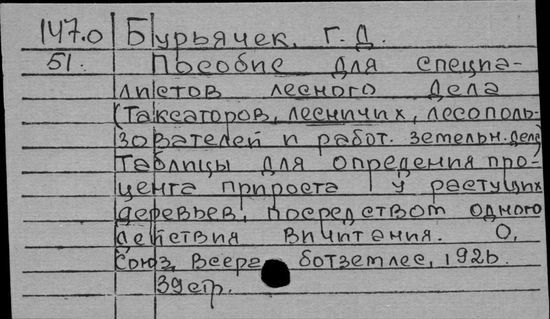 147.0 Бурьячек, Г.Д.
51. Пособие для специа-
листов лесного дела
(таксаторов, лесничих, лесополь-
зователей и работ. земельн. дела
Таблицы для опредения про-
цента прироста у растущих
деревьев, посредством одного
действия вичитания. О,
Союз, Всера ботземлес, 1926.
39стр.